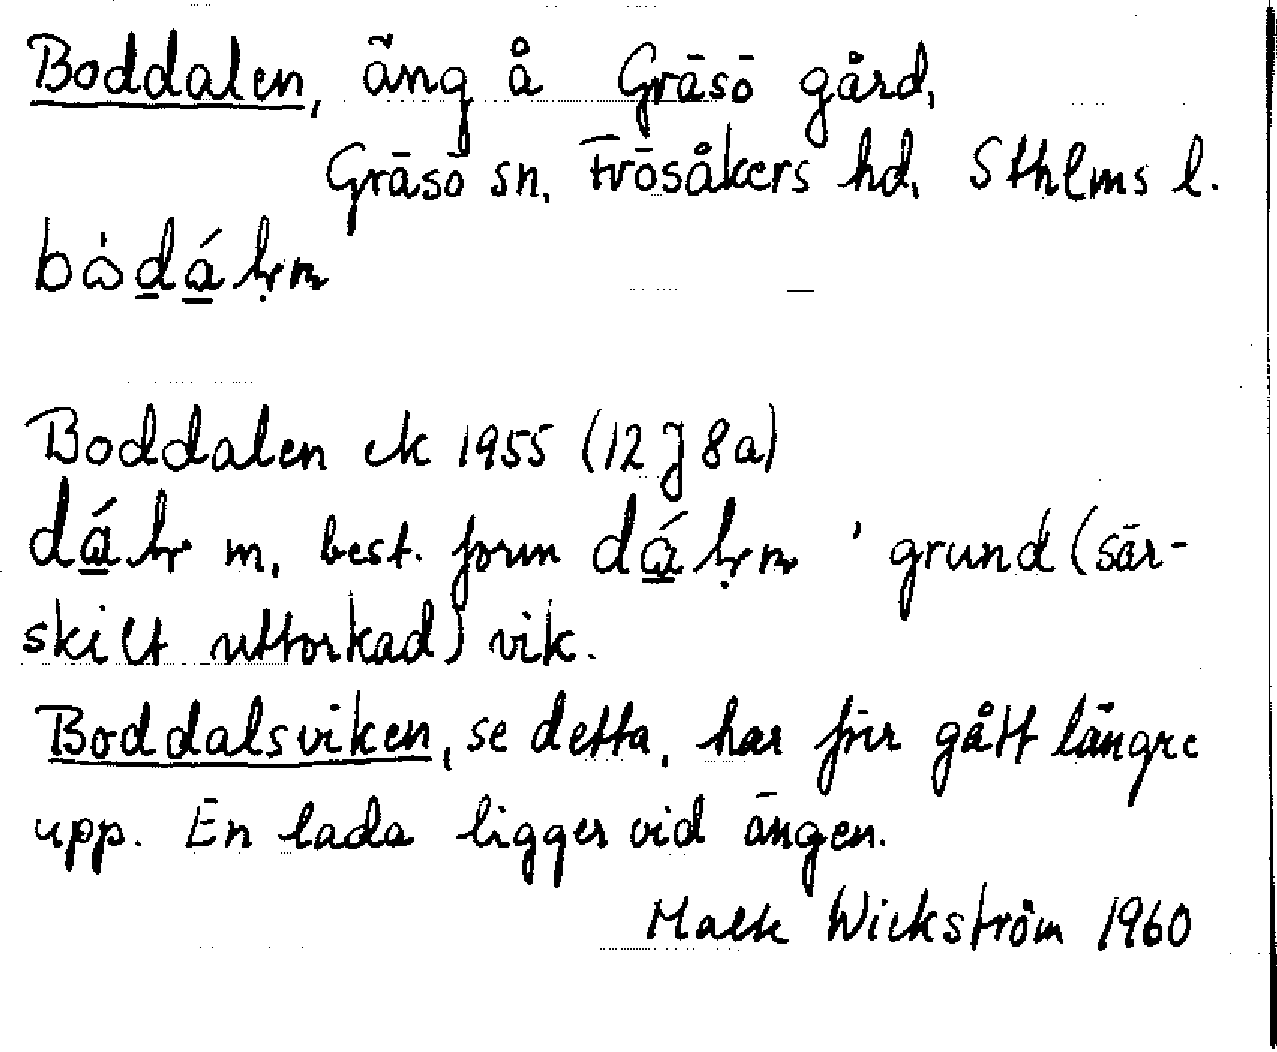 Boddalen, äng å Gräsö gård,
Gräsö sn, Frösåkers hd, Sthlms l.
Boddalen ek 1955 (12 J 8a)
m, best. form ' grund (sär-
skilt uttorkad) vik.
Boddalsviken, se detta, har förr gått längre
upp. En lada ligger vid ängen.
Maek Wickström 1960